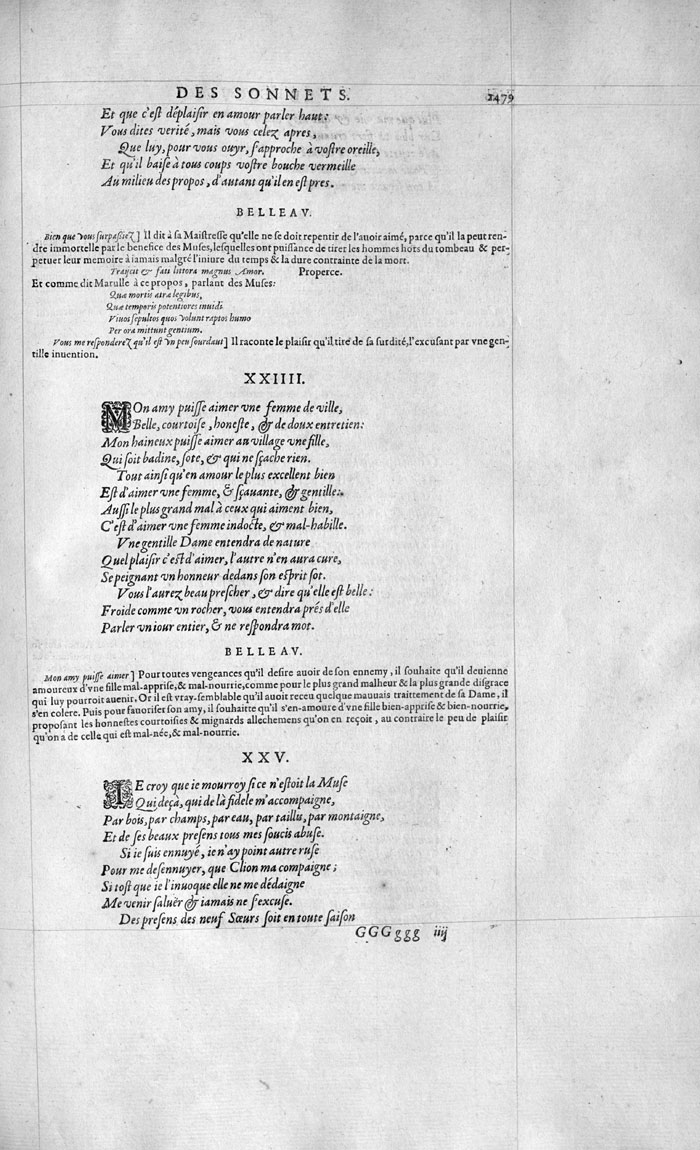 DES SONNETS. 1479
Et que c'eſt déplaiſir en amour parler haut:
Vous dites verité, mais vous celez apres,
Que luy, pour vous ouyr, ſ'approche à voſtre oreille,
Et qu'il baiſe à tous coups voſtre bouche vermeille
Au milieu des propos, d'autant qu'il en eſt pres.
BELLEAV.
Bien que vous ſurpaſſiez] Il dit à ſa Maiſtreſſe qu'elle ne ſe doit repentir de l'auoir aimé, parce qu'il la peut ren-
dre immortelle par le benefice des Muſes, leſquelles ont puiſſance de tirer les hommes hors du tombeau & per-
petuer leur memoire à iamais malgré l'iniure du temps & la dure contrainte de la mort.
Traijcit & fati littora magnus Amor. Properce.
Et comme dit Marulle à ce propos, parlant des Muſes:
Quæ mortis atræ legibus,
Quæ temporis potentiores inuidi
Viuos ſepultos quos volunt raptos humo
Per ora mittunt gentium.
Vous me reſponderez qu'il eſt vn peu ſourdaut] Il raconte le plaiſir qu'il tire de ſa ſurdité, l'excuſant par vne gen-
tille inuention.
XXIIII.
MOn amy puiſſe aimer vne femme de ville,
Belle, courtoiſe, honeſte, & de doux entretien:
Mon haineux puiſſe aimer au village vne fille,
Qui ſoit badine, ſote, & qui ne ſçache rien.
Tout ainſi qu'en amour le plus excellent bien
Eſt d'aimer vne femme, & ſçauante, & gentille:
Auſſi le plus grand mal à ceux qui aiment bien,
C'eſt d'aimer vne femme indocte, & mal-habille.
Vne gentille Dame entendra de nature
Quel plaiſir c'eſt d'aimer, l'autre n'en aura cure,
Se peignant vn honneur dedans ſon eſprit ſot.
Vous l'aurez beau preſcher, & dire qu'elle eſt belle:
Froide comme vn rocher, vous entendra prés d'elle
Parler vn iour entier, & ne reſpondra mot.
BELLEAV.
Mon amy puiſſe aimer] Pour toutes vengeances qu'il deſire auoir de ſon ennemy, il ſouhaite qu'il deuienne
amoureux d'vne fille mal-appriſe, & mal-nourrie, comme pour le plus grand malheur & la plus grande diſgrace
qui luy pourroit auenir. Or il eſt vray-ſemblable qu'il auoit receu quelque mauuais traittement de ſa Dame, il
s'en colere. Puis pour fauoriſer ſon amy, il ſouhaitte qu'il s'en-amoure d'vne fille bien-appriſe & bien-nourrie,
propoſant les honneſtes courtoiſies & mignards allechemens qu'on en reçoit, au contraire le peu de plaiſir
qu'on a de celle qui eſt mal-née, & mal-nourrie.
XXV.
IE croy que ie mourroy ſi ce n'eſtoit la Muſe
Qui deçà, qui de là fidele m'accompaigne,
Par bois, par champs, par eau, par taillis, par montaigne,
Et de ſes beaux preſens tous mes ſoucis abuſe.
Si ie ſuis ennuyé, ie n'ay point autre ruſe
Pour me deſennuyer, que Clion ma compaigne;
Si toſt que ie l'inuoque elle ne me dédaigne
Me venir ſaluër & iamais ne ſ'excuſe.
Des preſens des neuf Sœurs ſoit en toute ſaiſon
GGGggg iiij